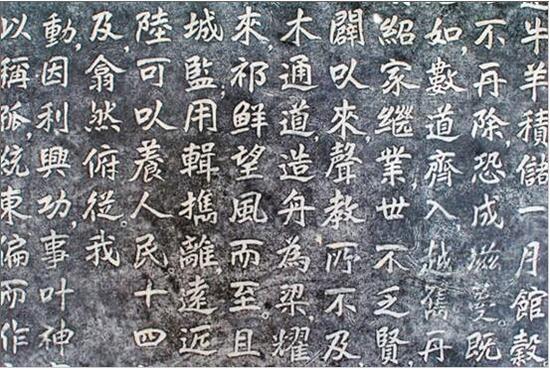 牛羊積儲,一月館穀。
不再除,恐成滋蔓。既
如,數道齊入,越雋再
紹家繼業,世不乏賢,
闢以來,聲教所不及,
木通道,造舟為梁,耀
來,祁鮮望風而至。且
城監,用輯攜離,遠近
陸可以養人民十四
及,翕然俯從。我
動,因利興功,事叶神
以稱孤,統東偏而作